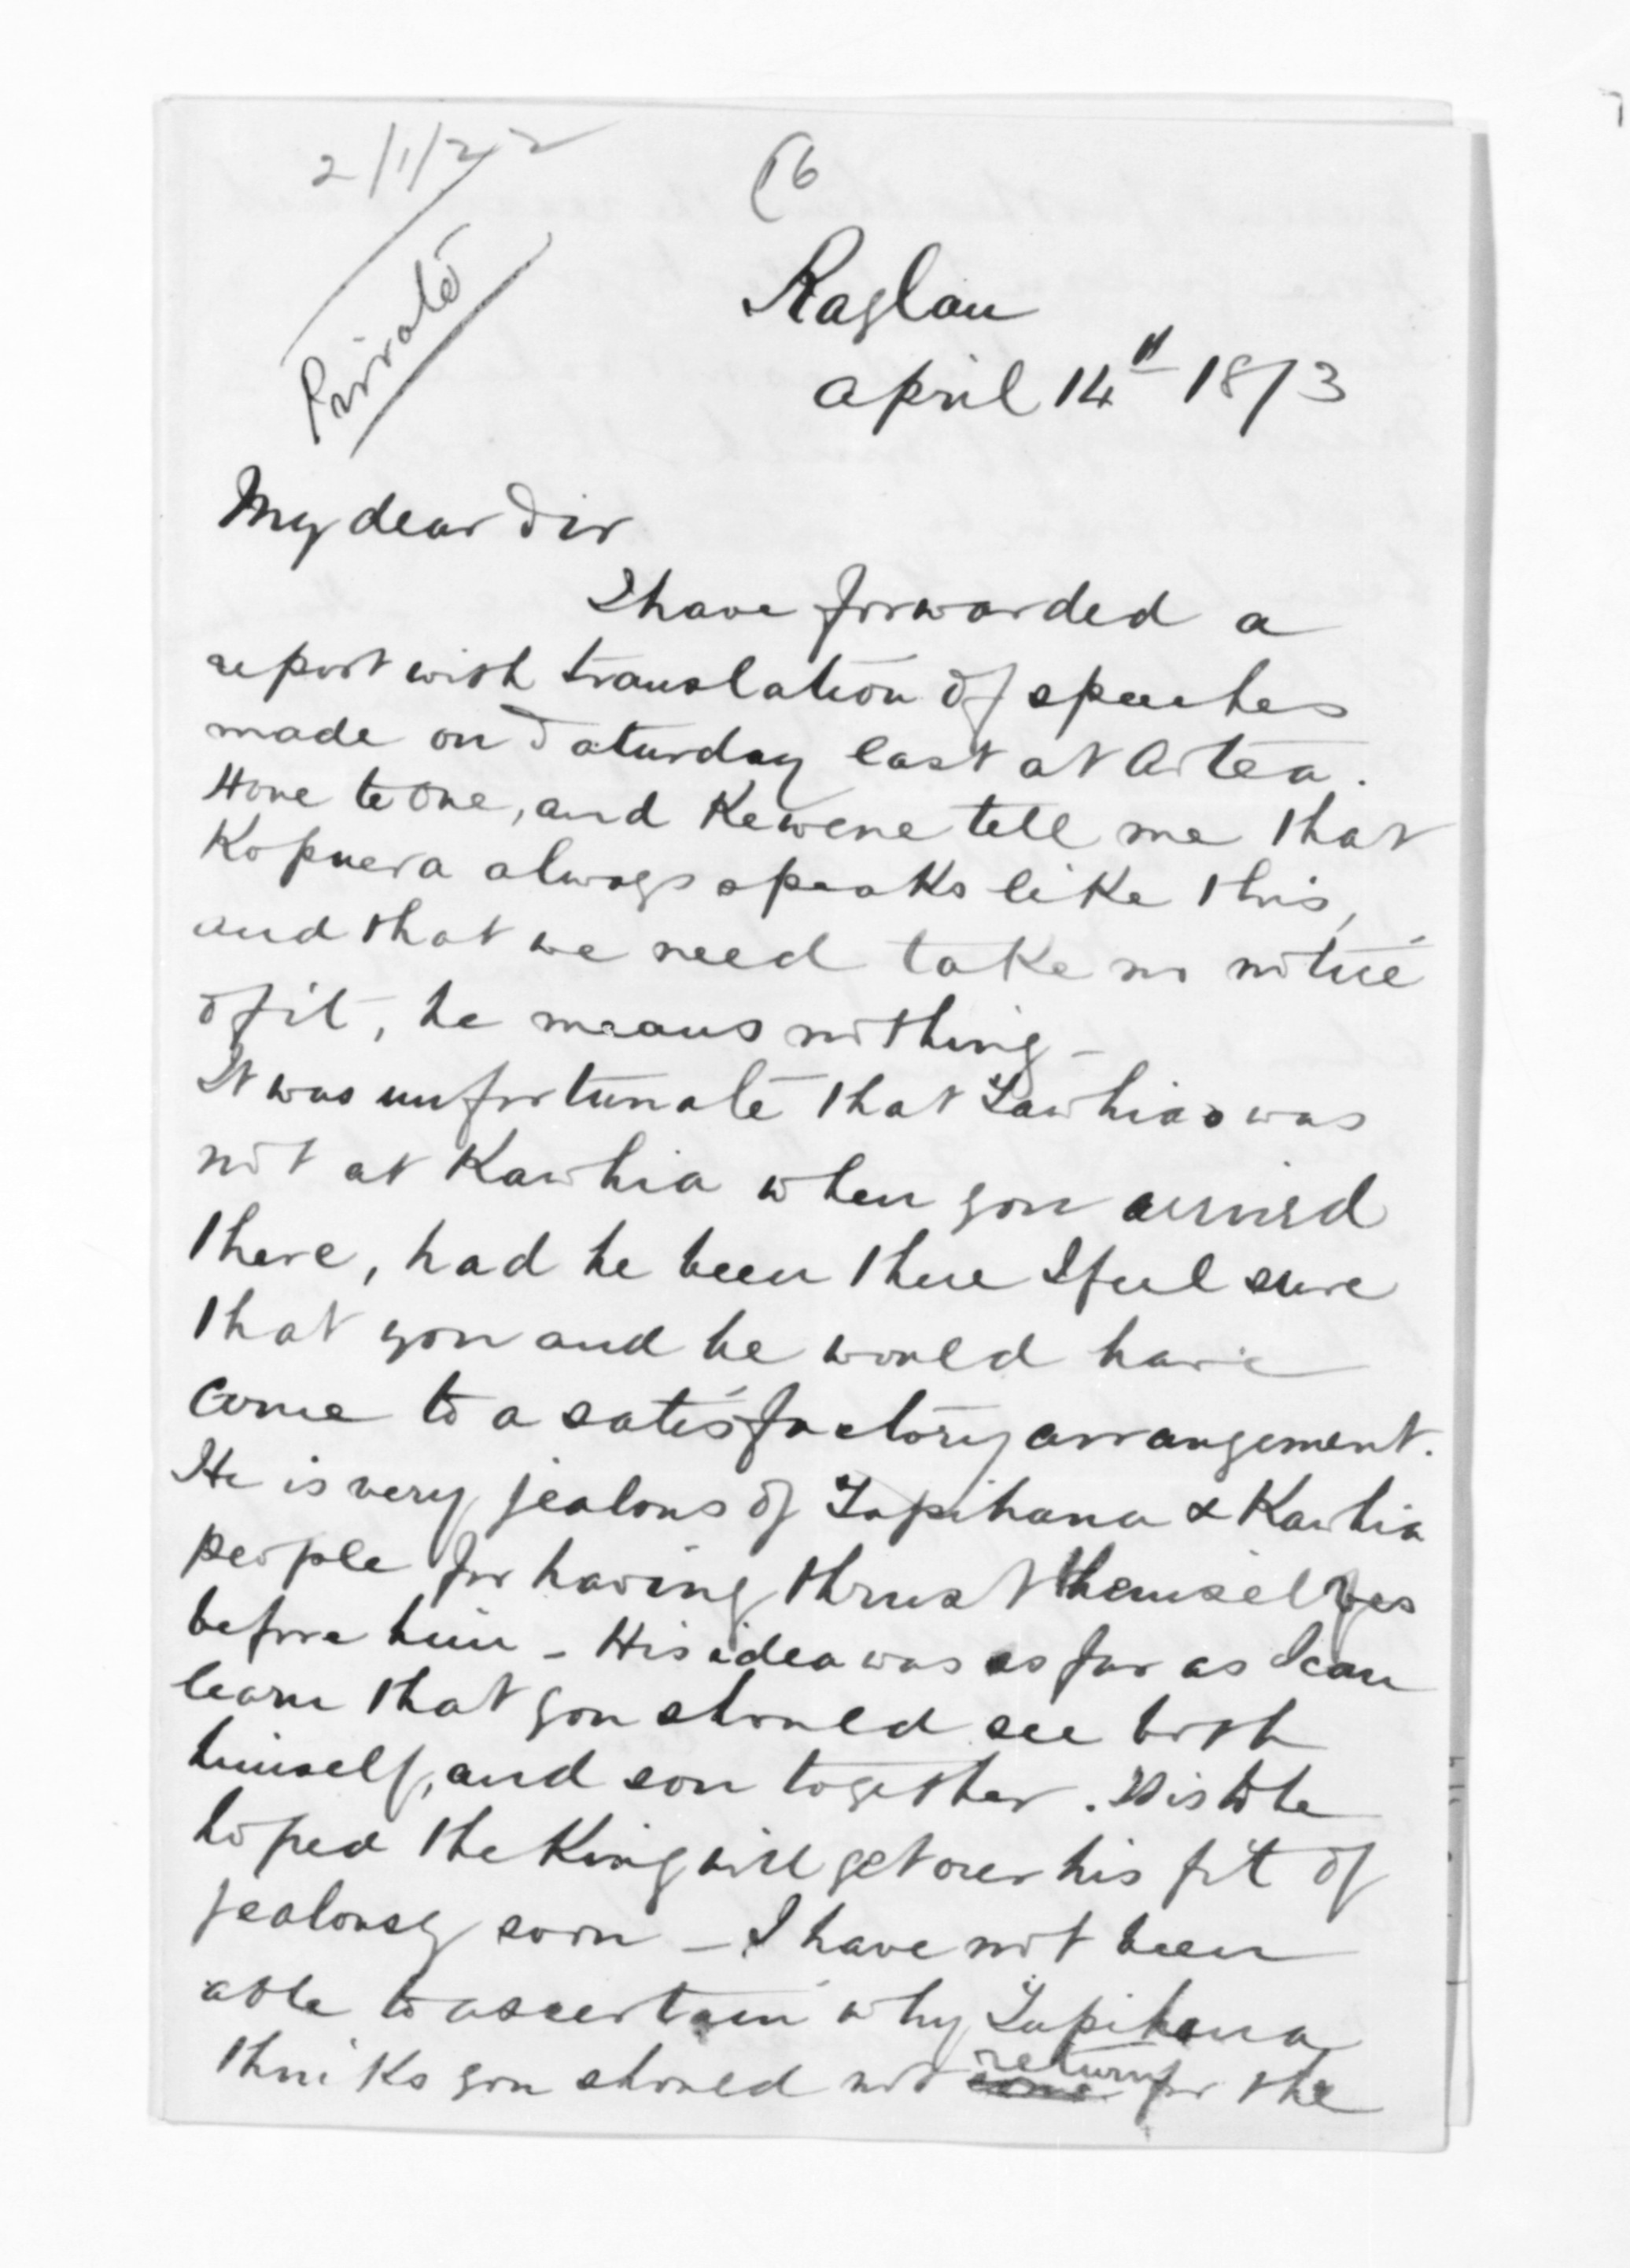 2/1/22
(6
Private
Raglan
April 14th 1873
My dear Sir
I have forwarded a
report with translation of speeches
made on Saturday last at Aotea.
Hone te One, and Kewene tell me that
Kopuera always speaks like this,
and that we need take no notice
of it, he means nothing -
It was unfortunate that Tawhiao was
not at Kawhia when you arrived
there, had he been there I feel sure
that you and he would have
come to a satisfactory arrangement.
He is very jealous of Tapihana & Kawhia
people for having thrust themselves
before him - His idea was as far as I can
learn that you should see both
himself, and son together. It is to be
hoped the King will get over his fit of
jealousy soon - I have not been
able to ascertain why Tapihana
thinks you should not return for the